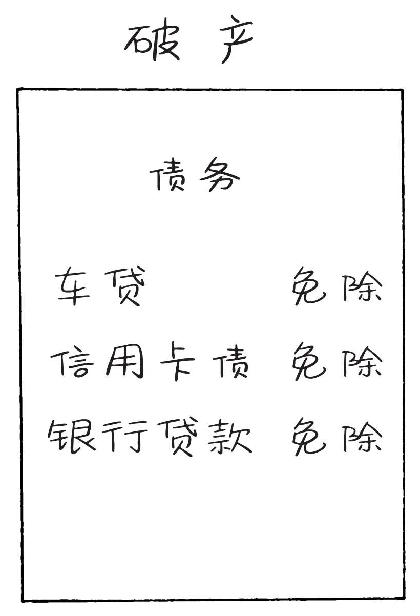 破产
债务
车贷 免除
信用卡债 免除
银行贷款 免除